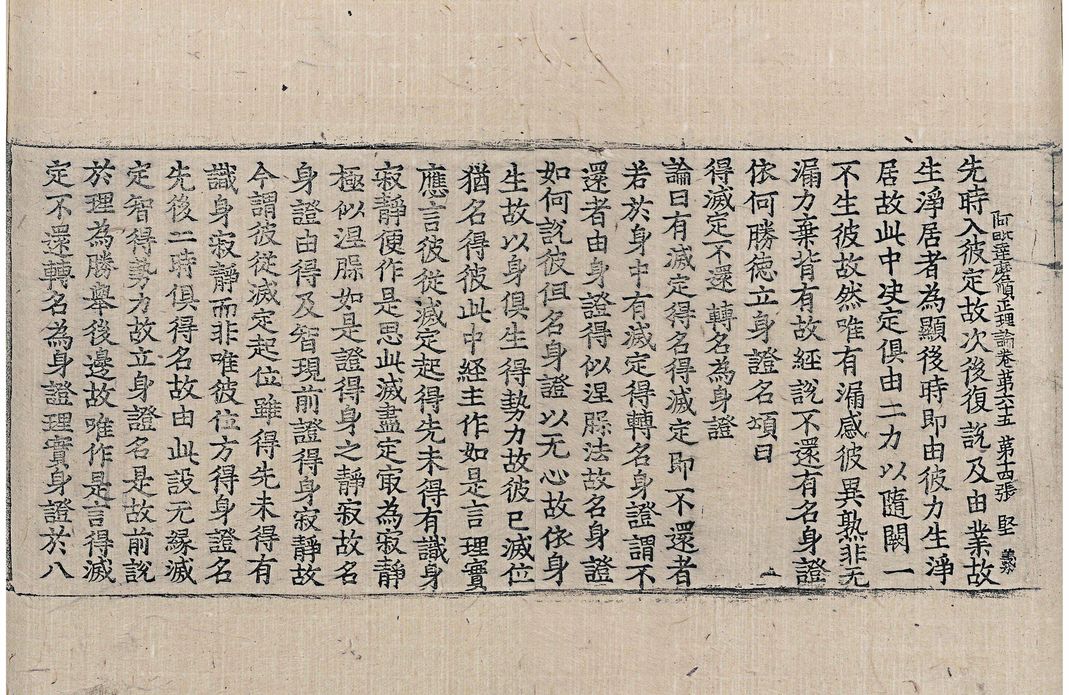 阿毗達磨順正理論卷第六十五 第十四張 堅 義弥
先時入彼定故次後復說及由業故
生淨居者為顯後時即由彼力生淨
居故此中決定俱由二力以隨闕一
不生彼故然唯有漏感彼異熟非无
漏力棄背有故經說不還有名身證
依何勝德立身證名頌曰
得滅定不還 轉名為身證
論曰有滅定得名得滅定即不還者
若於身中有滅定得轉名身證謂不
還者由身證得似涅槃法故名身證
如何說彼但名身證以无心故依身
生故以身俱生得勢力故彼已滅位
猶名得彼此中經主作如是言理實
應言彼從滅定起得先未得有識身
寂靜便作是思此滅盡定㝡為寂靜
極似涅槃如是證得身之靜寂故名
身證由得及智現前證得身寂靜故
今謂彼從滅定起位雖得先未得有
識身寂靜而非唯彼位方得身證名
先後二時俱得名故由此設无緣滅
定智得勢力故立身證名是故前說
於理為勝舉後邊故唯作是言得滅
定不還轉名為身證理實身證於八